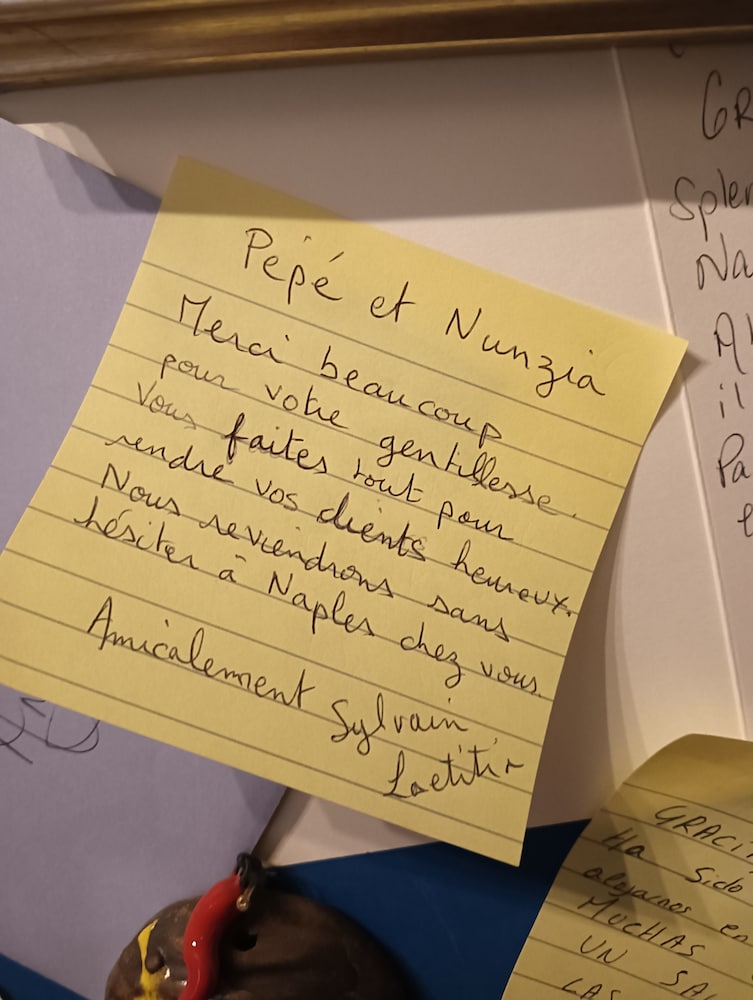 Pépé et Nunzia
Merci beaucoup
pour votre gentillesse.
Vous faites tout pour
rendre vos clients heureux.
Nous reviendrons sans
hésiter à Naples chez vous.
Amicalement Sylvain
Laetitia
GR
Splen
Na
il
Pa
GRACI
Ha sido
alojarnos en
MUCHAS
UN SA
LAS